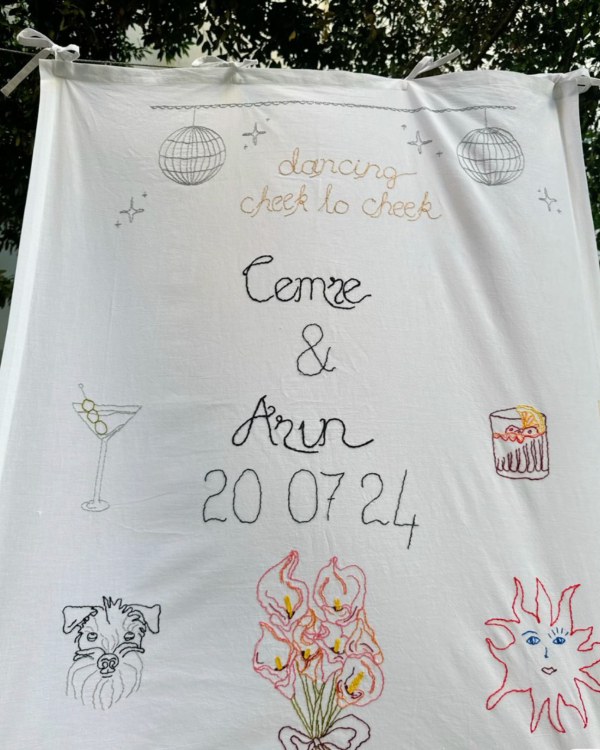 dancing
cheek to cheek
Cemre
&
Arın
20 07 24